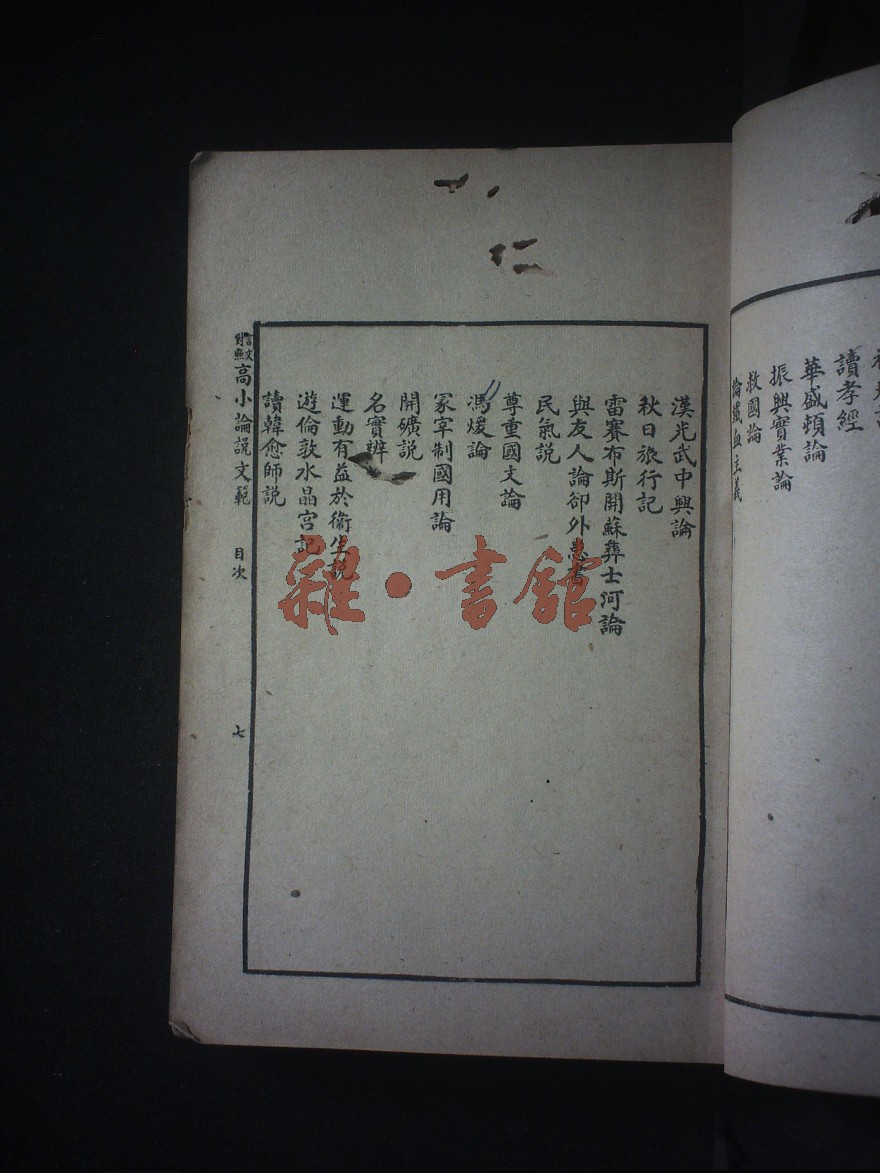 讀孝經
華盛頓論
振興實業論
救國論
論鐵血主義
漢光武中興論
秋日旅行記
雷賽布斯開蘇彝士河論
與友人論卻外患書
民氣說
尊重國文論
馮煖論
冢宰制國用論
開礦說
名實辨
運動有益於衞生說
遊倫敦水晶宮記
讀韓愈師說
言文對照高小論說文範 目次 七
雜·書館